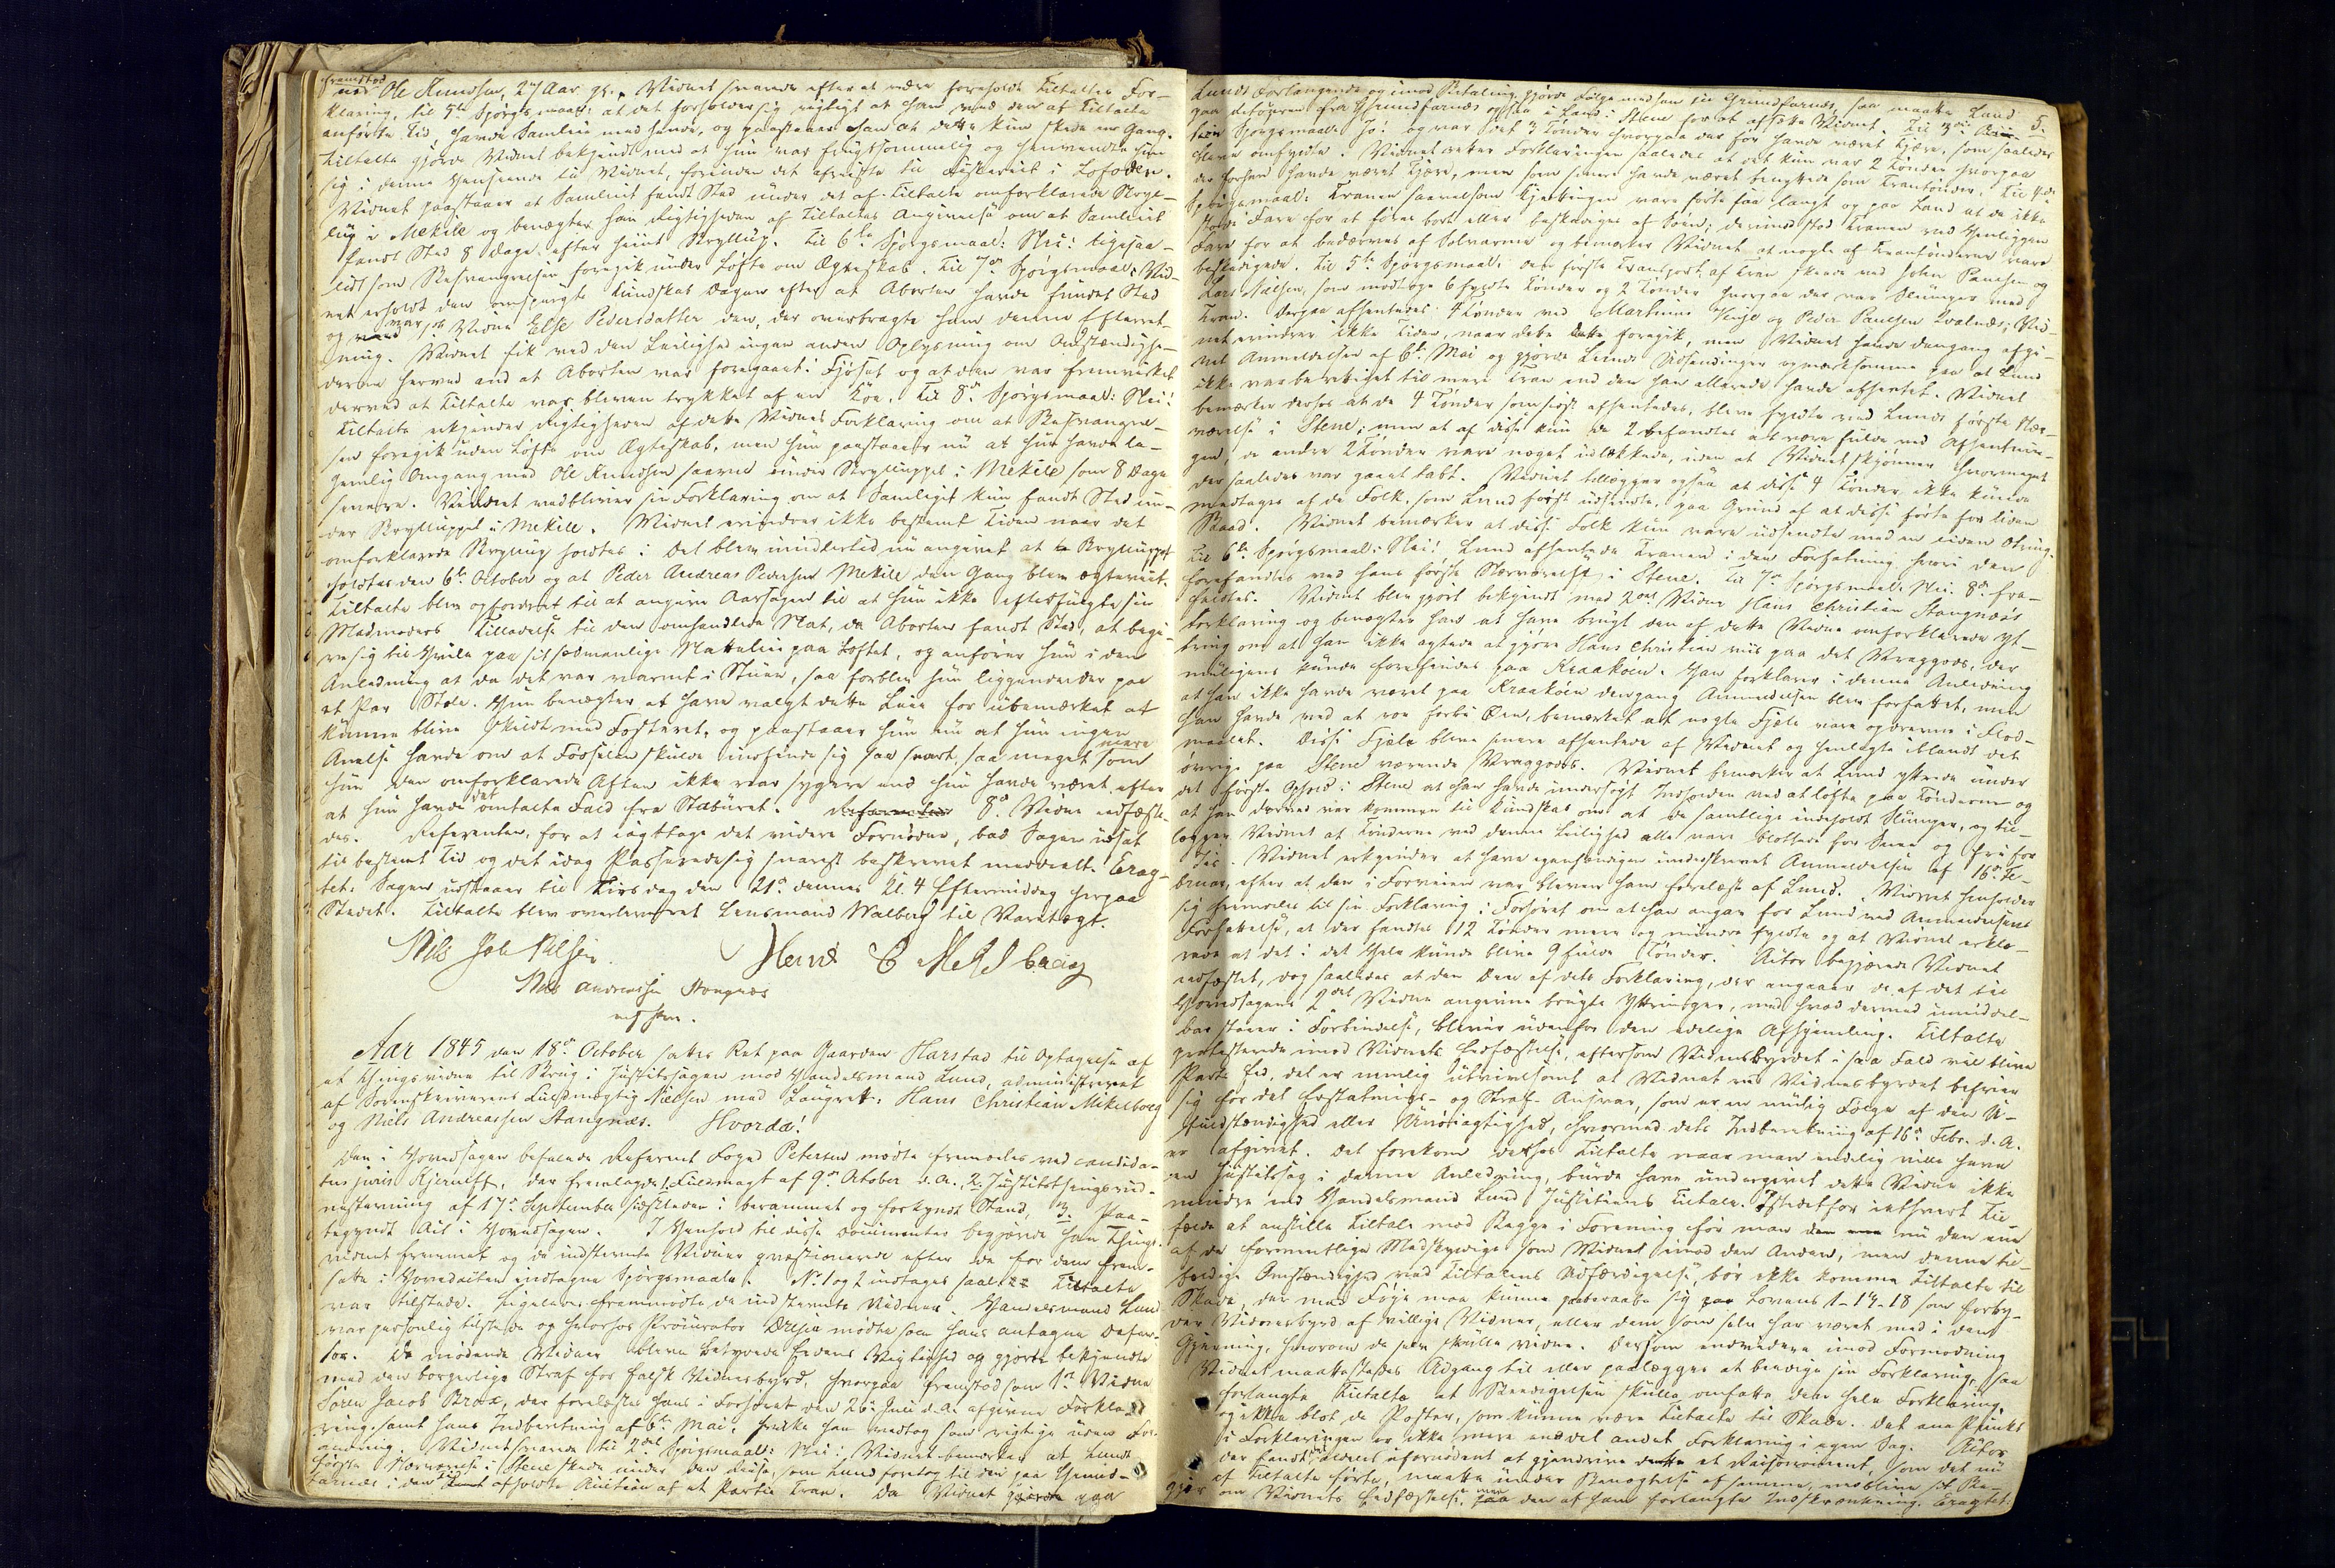 fremstod
med Ole Knudsen, 27 Aar gl. Vidnet svarede efter at være foreholdt Tiltaltes For-
klaring, til 5te Spørgsmaal: at det forholder sig rigtigt at han ved den af Tiltalte
anførte Tid, havde Samleie med hende, og paastaaer han at dette kun skede en Gang.
Tiltalte gjorde Vidnet bekjendt med at hun var frugtsommelig og henvendte hun
sig i denne Henseende til Vidnet, forinden det afreiste til Fiskeriet i Lofoden.
Vidnet paastaaer at Samleiet fandt Sted under det af Tiltalte omforklarede Bryl-
lup i Mekile og benægter han Rigtigheden af Tiltaltes Angivelse om at Samleiet
fandt Sted 8 Dage efter hiint Bryllup. Til 6te Spørgsmaal: Nei! ligesaa-
lidt som Besvangrelsen foregik under Løfte om Ægteskab. Til 7de Spørgsmaal: Vid-
net erholdt den omspurgte Kundskab Dagen efter at Aborten havde fundet Sted
og var Vidne Else Pedersdatter den, der overbragte ham denne Efterret-
ning. Vidnet fik ved den Leilighed ingen anden Oplysning om Omstændighe-
derne herved end at Aborten var foregaaet i Fjøset og at den var fremvirket
derved at Tiltalte var bleven trykket af en Koe. Til 8de Spørgsmaal: Nei!
Tiltalte erkjender Rigtigheden af dette Vidnes Forklaring om at Besvangrel-
sen foregik uden Løfte om Ægteskab, men hun paastaaer nu at hun havde le-
gemlig Omgang med Ole Knudsen saavel under Brylluppet i Mekile som 8 Dage
senere. Vidnet vedbliver sin Forklaring om at Samleiet kun fandt Sted un-
der Brylluppet i Mekile. Vidnet erindrer ikke bestemt Tiden naar det
omforklarede Bryllup holdtes i Det blev imidlertid nu angivet at Brylluppet
holdtes den 6te October og at Peder Andreas Pedersen Mekile den Gang blev ægteviet.
Tiltalte blev opfordret til at angive Aarsagen til at hun ikke efterfulgte sin
Madmoders Tilladelse til den omhandlede Nat, da Aborten fandt Sted, at begi-
ve sig til Hvile paa sit sædvanlige Natteleie paa Loftet, og anfører hun i den
Anledning at da det var varmt i Stuen, saa forblev hun liggende der paa
et Par Stole. Hun benægter at have valgt dette Leie for ubemærket at
kunne blive skildt med Fosteret, og paastaaer hun nu at hun ingen
Anelse havde om at Fødselen skulde indfinde sig saa snart, saa meget mere som
hun den omforklarede Aften ikke var sygere end hun havde været efter
at hun havde det omtalte Fald fra Stabburet. 8de Vidne edfæste-
des. Referenten, for at iagttage det videre Fornødne, bad Sagen udsat
til bestemt Tid og det idag Passerede sig snarest beskrevet meddeelt. Erag-
tet: Sagen udstaaer til Tirsdag den 21de dennes Kl. 4 Eftermiddag her paa
Stedet. Tiltalte blev overleveret Lensmand Walberg til Varetægt.
Nils Joh Nilsen.
Hans C Mekelborg
Nils Andreassen Stangnæs
Aar 1845 den 18de October sattes Ret paa Gaarden Harstad til Optagelse af
et Thingsvidne til Brug i Justitssagen mod Handelsmand Lund, administreret
af Sorenskriverens Fuldmægtig Nielsen med Laugret: Hans Christian Mikelborg
og Niels Andreassen Stangnæs. Hvorda!
Den i Hovedsagen befalede Referent Foged Petersen mødte fremdeles ved Candida-
tus juris Kjerulff, der fremlagde 1. Fuldmagt af 9de Otober d. A., 2. Justitsthingsvid-
nestævning af 17de September sidstleden i berammet og forkyndt Stand, 3. Paa-
begyndt Act i Hovedsagen. I Henhold til disse Documenter begjærede han Things-
vidnet fremmet og de indstevnte Vidner qvæstionerede efter de for dem frem-
satte i Hovedacten indtagne Spørgsmaale. No 1 og 2 indtages saal. Tiltalte
var tilstede. Ligeledes fremmødte de indstevnte Vidner. Handelsmand Lund
var personlig tilstede og hos Procurator Dreyer mødte som hans antagne Defen-
sor. De mødende Vidner bleve betydede Eedens Vigtighed og gjorte bekjendte
med den borgerlige Straf for falsk Vidnesbyrd, hvorpaa fremstod som 1ste Vidne
Søren Jacob Brox, der forelæstes hans i Forhøret den 26de Juli d.A. afgivne Forkla-
ring, samt hans Indberetning af 6te Mai, hvilke han vedtog som rigtige uden For-
andring. Vidnet svarede til 2det Spørgsmaal: Nei! Vidnet bemærker at Lunds
første Nærværelse i Stene skede under den Reise, som Lund foretog til den paa Grund-
farnæs i den Tid afholdte Auction af et Partie Tran. Da Vidnet paa
5.
Lunds Forlangende og imod Betaling gjorde Følge med ham til Grundfarnæs, saa maatte Lund
paa Retouren fra Grundfarnæs ogsaa i Land i Stene for at afsætte Vidnet. Til 3die
Spørgsmaal: Jo! og var det 3 Tønder hvorpaa der før havde været Tjære, som saaledes
bleve omfyldte. Vidnet retter Forklaringen saaledes at det kun var 2 Tønder hvorpaa
der forhen havde været Tjære, men som senere havde været benyttede som Trantønder. Til 4de
Spørgsmaal: Tranen saavelsom Hjelkingen vare førte saa langt op paa Land at de ikke
stode Fare for at føres bort eller beskadiges af Søen; derimod stod Tranen ved Henliggen
Fare for at bedærves af Solvarme og bemærker Vidnet at nogle af Trantønderne vare
beskadigede. Til 5te Spørgsmaal: den første Transport af Tran skede ved John Paulsen og
Lars Nielsen, som modtoge 6 fyldte Tønder og 2 Tønder hvorpaa der var Slumper med
Tran. Derpaa afhentedes 4 Tønder ved Marthinus Henje og Peder Paulsen Qvalnæs; Vid-
net erindrer ikke Tiden, naar dette foregik, men Vidnet havde dengang afgi-
vet Anmeldelsen af 6te Mai og gjorde Lunds Udsendinger opmærksomme paa at Lund
ikke var berettiget til mere Tran end den han allerede havde afhentet. Vidnet
bemærker derhos at de 4 Tønder som sidst afhentedes, bleve fyldte ved Lunds første Nær-
værelse i Stene; men at af disse kun de 2 befandtes at være fulde ved Afhentnin-
gen, de andre 2 Tønder vare noget udlækkede, uden at Vidnet skjønner hvormeget
der saaledes var gaaet tabt. Vidnet tillægger ogsaa at disse 4 Tønder ikke kunde
medtages af de Folk, som Lund først udsendte, paa Grund af at disse førte for liden
Baad. Vidnet bemærker at disse Folk kun vare udsendte med en liden Otring.
Til 6te Spørgsmaal: Nei! Lund afhentede Tranen i den Forfatning, hvori den
forefandtes ved hans første Nærværelse i Stene. Til 7de Spørgsmaal: Nei. 8de fra-
faldtes. Vidnet blev gjort bekjendt med 2det Vidne Hans Christian Stangnæs's
Forklaring og benægter han at have brugt den af dette Vidne omforklarede Yt-
tring om at han ikke agtede at gjøre Hans Christian viis paa det Vraggods, der
muligens kunde forefindes paa Kraakøen. Han forklarer i denne Anledning
at han ikke havde været paa Kraakøen dengang Anmeldelsen blev forfattet, men
han havde ved at roe forbi Øen, bemærket at nogle Fjæle vare opdrevne i Flod-
maalet. Disse Fjæle bleve senere afhentede af Vidnet og henlagte iblandt det
øvrige paa Stene værende Vraggods. Vidnet bemærker at Lund yttrede under
det første Ophold i Stene at han havde undersøgt Indholden ved at løfte paa Tønderne og
at han derved var kommen til Kundskab om at de samtlige indeholdt Slumper, og til-
lægger Vidnet at Tønderne ved denne Leilighed alle vare blottede for Snee og frie for
Iis. Vidnet erkjender at have egenhændigen underskrevet Anmeldelsen af 16de Fe-
bruar, efter at den i Forveien var bleven ham forelæst af Lund. Vidnet henholder
sig fremdeles til sin Forklaring i Forhøret om at han angav for Lund ved Anmeldelsens
Forfattelse, at der fandtes 12 Tønder mere og mindre fyldte og at Vidnet erklæ-
rede at det i det Hele kunde blive 9 fulde Tønder. Actor begjærede Vidnet
edfæstet, dog saaledes at den Deel af dets Forklaring, der angaaer de af det til
Hovedsagens 2det Vidne angivne brugte Yttringer, med hvad dermed umiddel-
bar staaer i Forbindelse, bliver udenfor den edelige Afhjemling. Tiltalte
protesterede imod Vidnets Eedfæstelse, eftersom Vidnesbyrdet i saa Fald vil blive
Parts Eed, det er nemlig utvivlsomt at Vidnet ved Vidnesbyrdet befrier
sig for det Erstatnings- og Straf-Ansvar, som er en mulig Følge af den U-
fuldstændighed eller Unøiagtighed, hvormed dets Indberetning af 16de Febr. d. A.
er afgivet. Det forekom derhos Tiltalte naar man endelig ville have
en Justitssag i denne Anledning, burde have undergivet dette Vidne ikke
mindre end Handelsmand Lund Justitiens Tiltale. Istedetfor iethvert Til-
fælde at anstille Tiltale mod Begge i Forening før man nu den ene
af de formentlige Medskyldige som Vidnet imod den Anden, men denne til-
fældige Omstændighed ved Tiltalens Udfærdigelse, bør ikke komme Tiltalte til
Skade, der med Føye maa kunne paaberaabe sig Lovens 1-13-18 som forby-
der Vidnesbyrd af villige Vidner, eller dem som selv har været med i den
Gjerning, hvorom de selv skulle vidne. Dersom endvidere imod Formodning
Vidnet maatte stedes Adgang til eller paalægges at beedige sin Forklaring, saa
forlangte Tiltalte at Beedigelsen skulle omfatte dens hele Forklaring,
og ikke blot de Poster, som kunne være Tiltalte til Skade. Det ene Punkt
i Forklaringen er ikke mere end det andet Forklaring i egen Sag. Actor
der fandt det aldeles ufornødent at gjendrive et Raisonnement, som det nu
af Tiltalte førte, maatte under Benægtelse af samme, vedblive sit Be-
gjær om Vidnets Eedfæstelse med den af ham forlangte Indskrænkning. Eragtet.